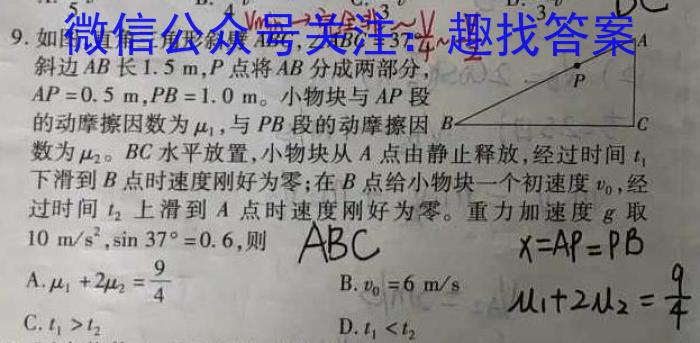 微信公众号关注：趣找答案
9. 如图,直角三角形斜劈ABC,∠ABC=37°,
斜边 AB 长 1.5 m,P 点将 AB 分成两部分,
AP=0.5 m,PB=1.0 m。小物块与 AP 段
的动摩擦因数为 μ₁,与 PB 段的动摩擦因
数为 μ₂。BC 水平放置,小物块从 A 点由静止释放,经过时间 t₁
下滑到 B 点时速度刚好为零;在 B 点给小物块一个初速度 v₀,经
过时间 t₂ 上滑到 A 点时速度刚好为零。重力加速度 g 取
10 m/s²,sin 37°=0.6,则
A
P
B
C
ABC
x=AP=PB
A. μ₁+2μ₂=9/4
B. v₀=6 m/s
μ₁+2μ₂=9/4
C. t₁>t₂
D. t₁<t₂